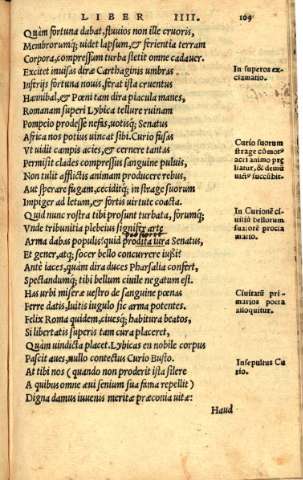 LIBER IIII. 109
Quàm fortuna dabat, fluuios non ille cruoris,
Membrorumq; uidet lapsum, & ferientia terram
Corpora, compressum turba stetit omne cadauer.
Excitet inuisas diræ Carthaginis umbras
In superos exclamatio.
Inferijs fortuna nouis, ferat ista cruentus
Hannibal, & Pœni tam dira piacula manes,
Romanam superi Lybica tellure ruinam
Pompeio prodesse nefas, uotisq; Senatus
Africa nos potius uincat sibi. Curio fusas
Vt uidit campis acies, & cernere tantas
Permisit clades compressus sanguine puluis,
Non tulit afflictis animam producere rebus,
Aut sperare fugam, ceciditq; in strage suorum
Impiger ad letum, & fortis uirtute coacta.
Quid nunc rostra tibi prosunt turbata, forumq;
Vnde tribunitia plebeius signifer arte
Arma dabas populis? quid prodita iura Senatus,
Et gener, atq; socer bello concurrere iussi?
Ante iaces, quàm dira duces Pharsalia confert,
Spectandumq; tibi bellum ciuile negatum est.
Has urbi miseræ uestro de sanguine pœnas
Ferre datis, luitis iugulo sic arma potentes.
Felix Roma quidem, ciuesq; habitura beatos,
Si libertatis superis tam cura placeret,
Quàm uindicta placet. Lybicas en nobile corpus
Pascit aues, nullo contectus Curio Busto.
At tibi nos (quando non proderit ista silere
A quibus omne æui senium sua fama repellit)
Digna damus iuuenis meritæ præconia uitæ:
Haud